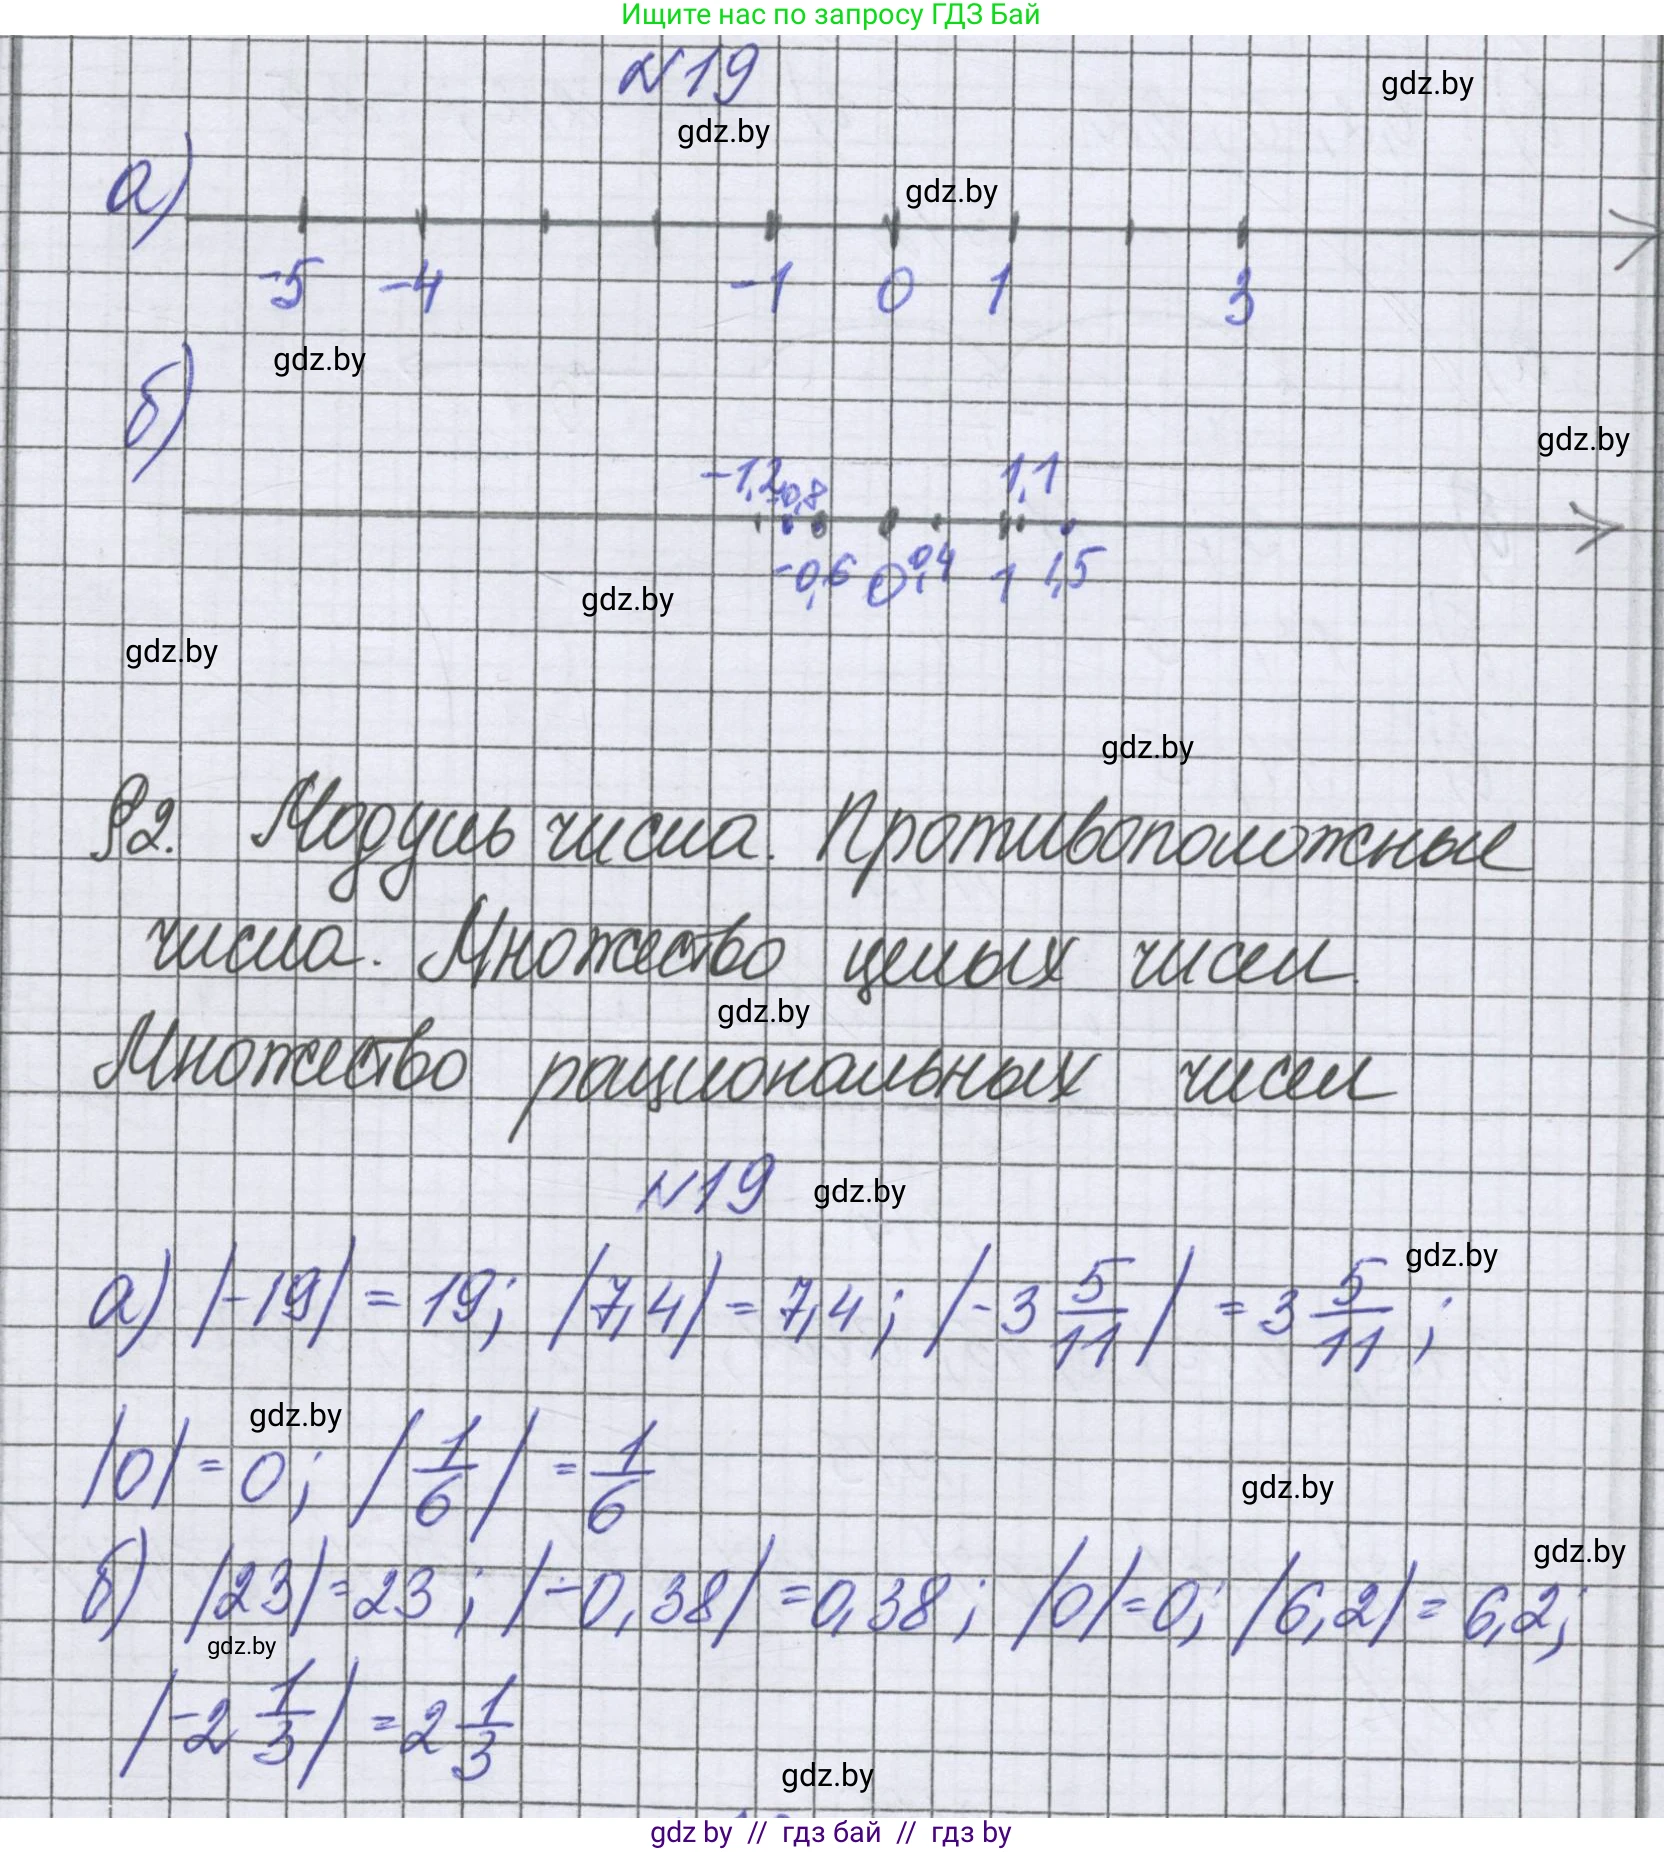 Ищите нас по запросу ГДЗ Бай
№19
gdz.by
gdz.by
gdz.by
а)
-5 -4 -1 0 1 3
gdz.by
б)
gdz.by
-1,2 -0,8 1,1
-0,6 0 0,4 1 1,5
gdz.by
gdz.by
gdz.by
§2. Модуль числа. Противоположные
числа. Множество целых чисел.
gdz.by
Множество рациональных чисел
№19 gdz.by
gdz.by
а) |-19| = 19; |7,4| = 7,4; |-3 5/11| = 3 5/11;
gdz.by
|0| = 0; |1/6| = 1/6
gdz.by
gdz.by
б) |23| = 23; |-0,38| = 0,38; |0| = 0; |6,2| = 6,2;
gdz.by
|-2 1/3| = 2 1/3
gdz.by
gdz by // гдз бай // гдз by